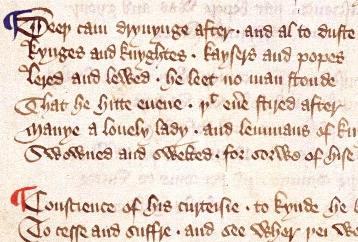 ¶ Deeþ cam dryuynge after · and al to duste
kynges and knyghtes · kaysers and popes
lered and lewed · he leet no man stonde
That he hitte euene · þͭ eue stired after
Manye a louely lady · and lemmans of kn
Swowned and swelted · for sorwe of hise
¶ Conscience of his curteisie · to kynde he b
To cesse and suffre · and see wher þei wo